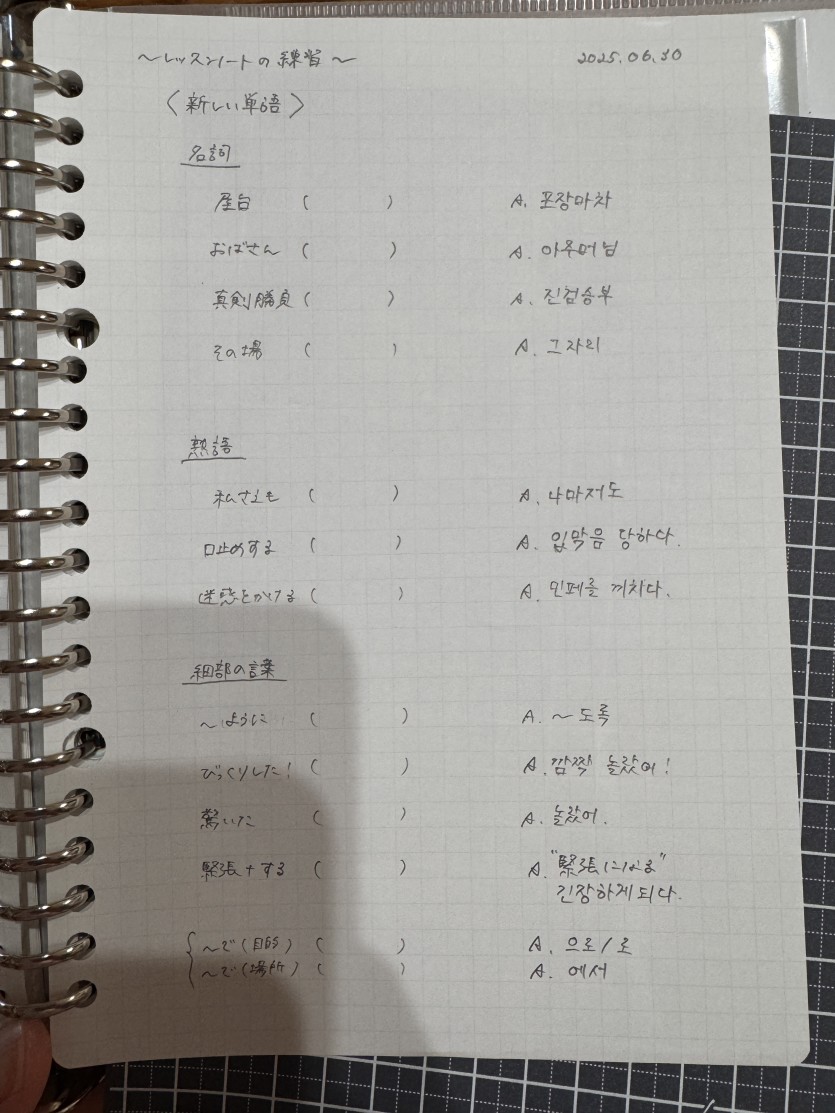 〜レッスンノートの練習〜 2025.06.30
〈新しい単語〉
名詞
屋台 ( ) A. 포장마차
おばさん ( ) A. 아주머님
真剣勝負 ( ) A. 진검승부
その場 ( ) A. 그자리
熟語
私さえも ( ) A. 나마저도
口止めする ( ) A. 입막음 당하다.
迷惑をかける ( ) A. 민폐를 끼치다.
細部の言葉
〜ように ( ) A. 〜도록
びっくりした! ( ) A. 깜짝 놀랐어!
驚いた ( ) A. 놀랐어.
緊張+する ( ) A. "緊張になる"
긴장하게 되다.
〜で(目的) ( ) A. 으로/로
〜で(場所) ( ) A. 에서